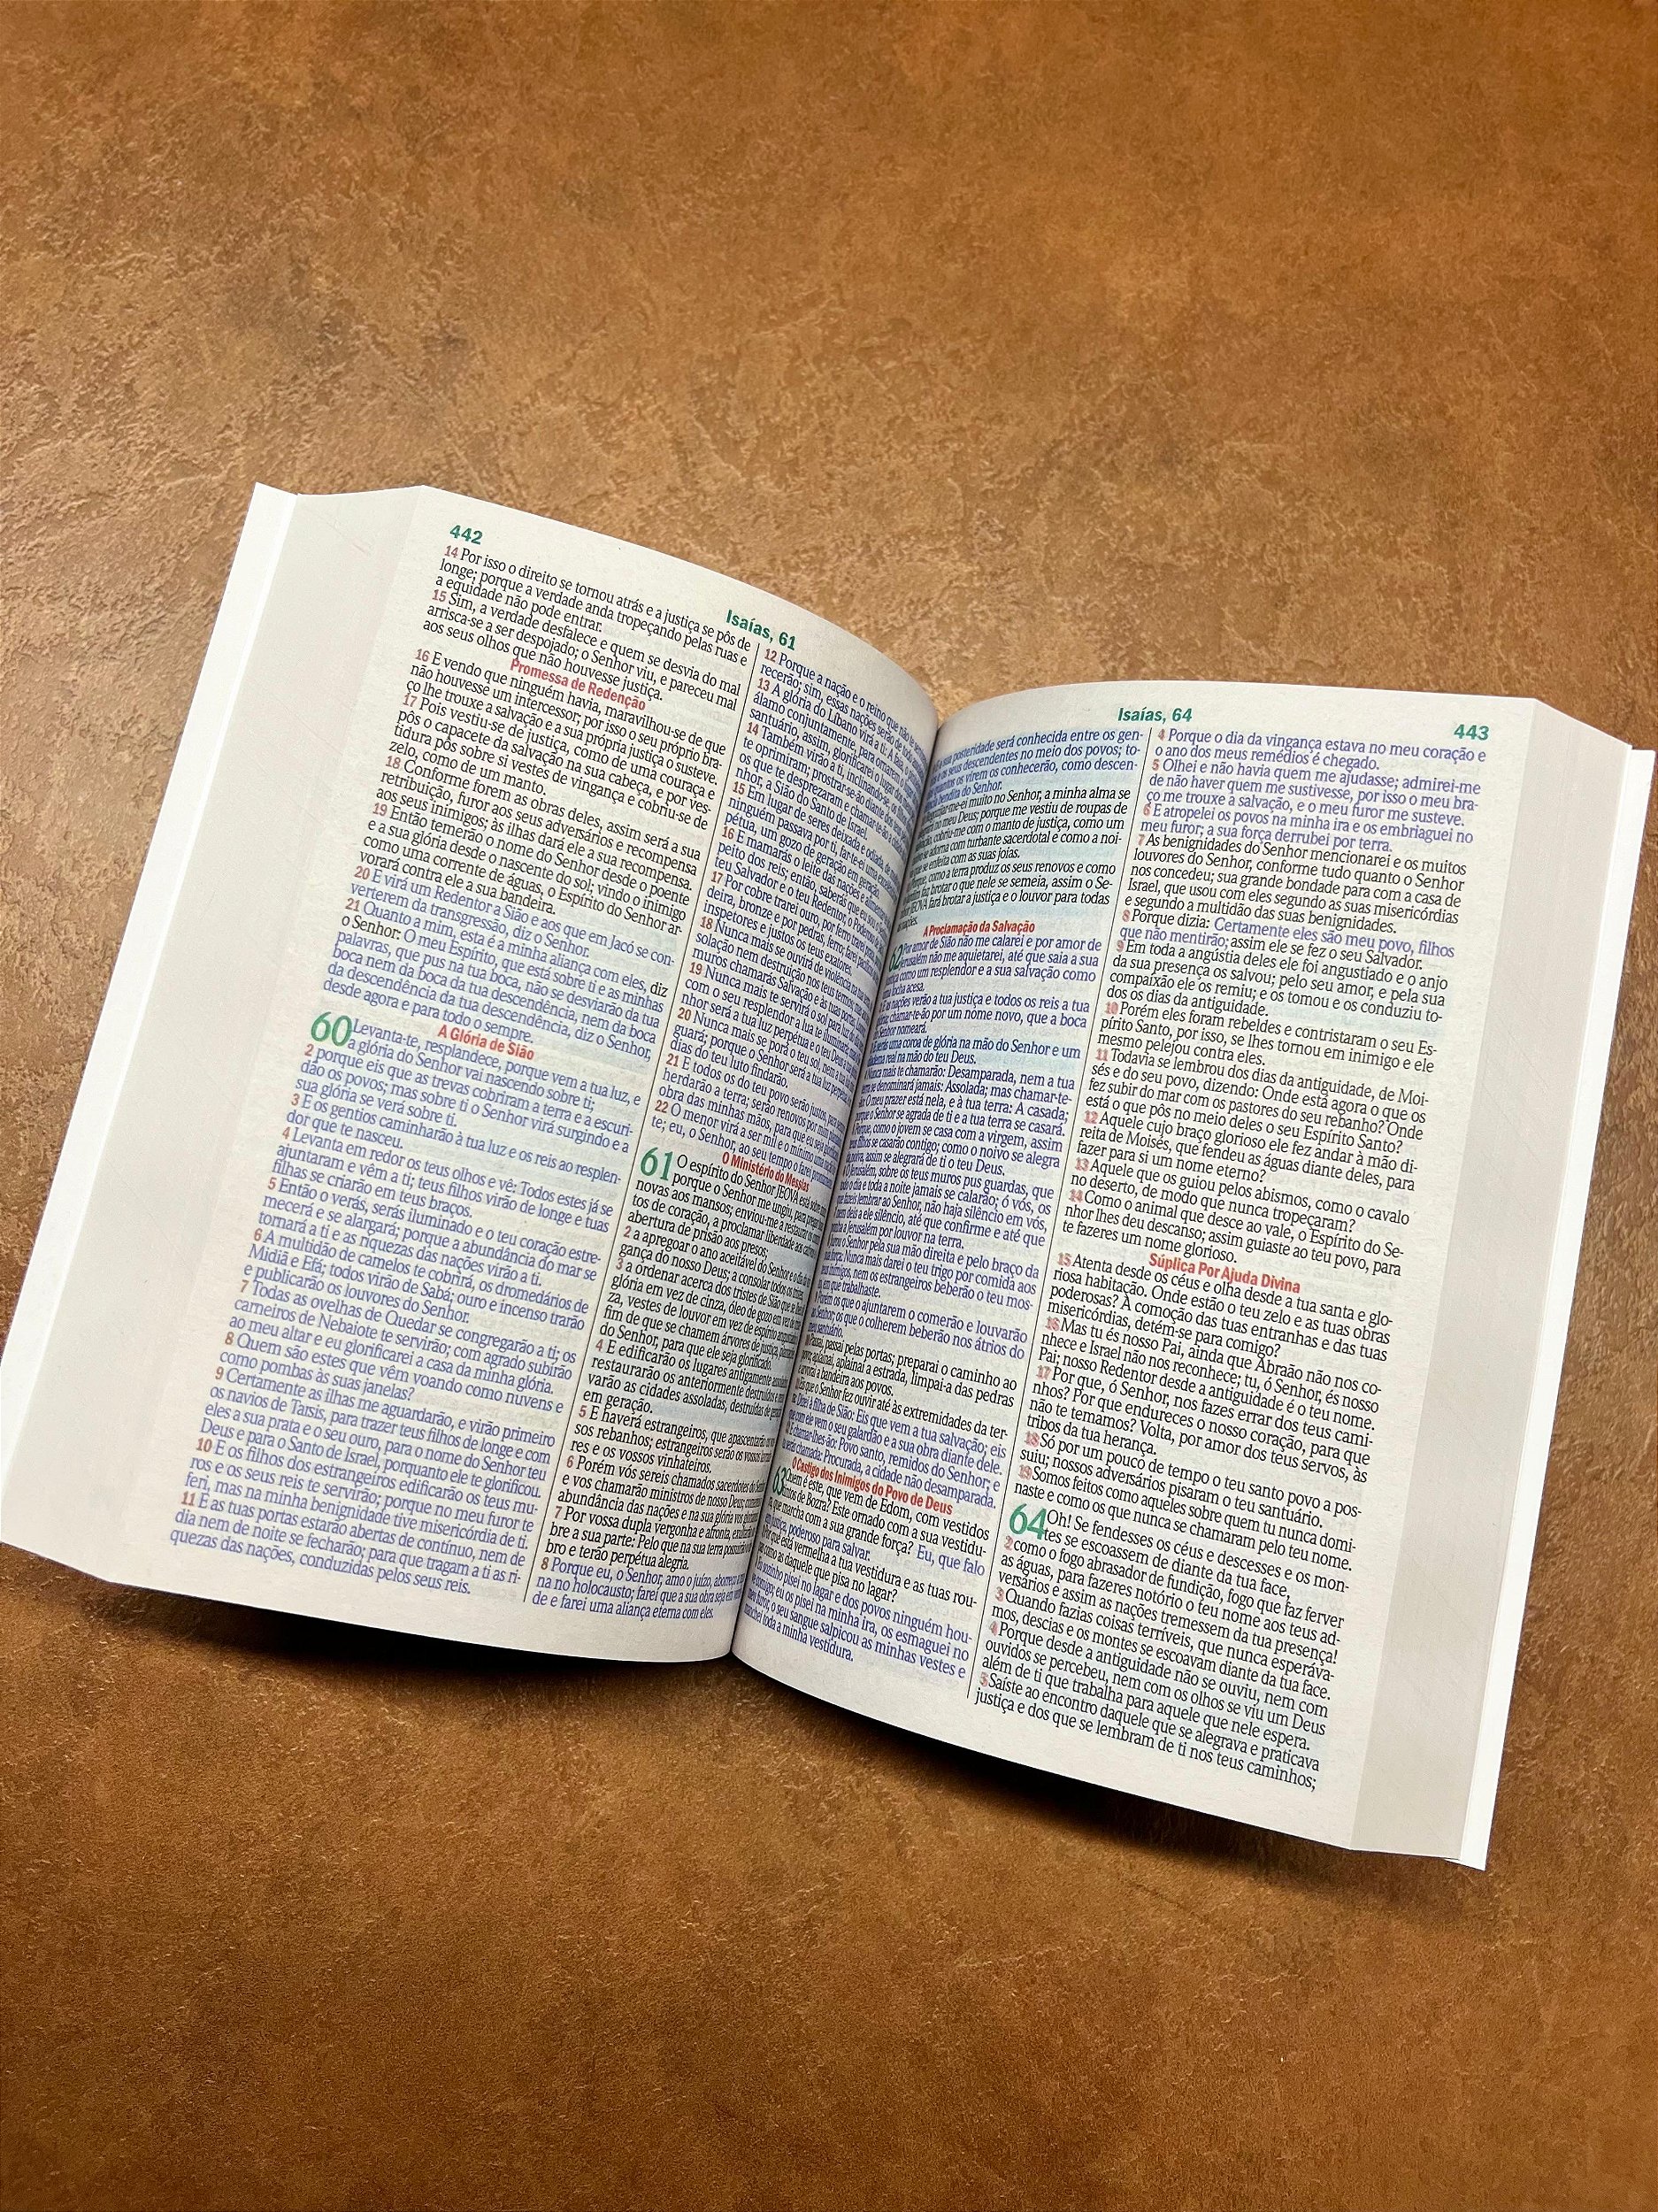 442
Isaías, 61
14 Por isso o direito se tornou atrás e a justiça se pôs de
longe; porque a verdade anda tropeçando pelas ruas e
a equidade não pode entrar.
15 Sim, a verdade desfalece e quem se desvia do mal
arrisca-se a ser despojado; o Senhor viu, e pareceu mal
aos seus olhos que não houvesse justiça.
Promessa de Redenção
16 E vendo que ninguém havia, maravilhou-se de que
não houvesse um intercessor; por isso o seu próprio bra-
ço lhe trouxe a salvação e a sua própria justiça o susteve.
17 Pois vestiu-se de justiça, como de uma couraça e
pôs o capacete da salvação na sua cabeça, e por ves-
tidura pôs sobre si vestes de vingança e cobriu-se de
zelo, como de um manto.
18 Conforme forem as obras deles, assim será a sua
retribuição, furor aos seus adversários e recompensa
aos seus inimigos; às ilhas dará ele a sua recompensa.
19 Então temerão o nome do Senhor desde o poente
e a sua glória desde o nascente do sol; vindo o inimigo
como uma corrente de águas, o Espírito do Senhor ar-
vorará contra ele a sua bandeira.
20 E virá um Redentor a Sião e aos que em Jacó se con-
verterem da transgressão, diz o Senhor.
21 Quanto a mim, esta é a minha aliança com eles, diz
o Senhor: O meu Espírito, que está sobre ti e as minhas
palavras, que pus na tua boca, não se desviarão da tua
boca nem da boca da tua descendência, nem da boca
da descendência da tua descendência, diz o Senhor,
desde agora e para todo o sempre.
A Glória de Sião
60 Levanta-te, resplandece, porque vem a tua luz, e
a glória do Senhor vai nascendo sobre ti;
2 porque eis que as trevas cobriram a terra e a escuri-
dão os povos; mas sobre ti o Senhor virá surgindo e a
sua glória se verá sobre ti.
3 E os gentios caminharão à tua luz e os reis ao resplen-
dor que te nasceu.
4 Levanta em redor os teus olhos e vê: Todos estes já se
ajuntaram e vêm a ti; teus filhos virão de longe e tuas
filhas se criarão em teus braços.
5 Então o verás, serás iluminado e o teu coração estre-
mecerá e se alargará; porque a abundância do mar se
tornará a ti e as riquezas das nações virão a ti.
6 A multidão de camelos te cobrirá, os dromedários de
Midiã e Efá; todos virão de Sabá; ouro e incenso trarão
e publicarão os louvores do Senhor.
7 Todas as ovelhas de Quedar se congregarão a ti; os
carneiros de Nebaiote te servirão; com agrado subirão
ao meu altar e eu glorificarei a casa da minha glória.
8 Quem são estes que vêm voando como nuvens e
como pombas às suas janelas?
9 Certamente as ilhas me aguardarão, e virão primeiro
os navios de Tarsis, para trazer teus filhos de longe e com
eles a sua prata e o seu ouro, para o nome do Senhor teu
Deus e para o Santo de Israel, porquanto ele te glorificou.
10 E os filhos dos estrangeiros edificarão os teus mu-
ros e os seus reis te servirão; porque no meu furor te
feri, mas na minha benignidade tive misericórdia de ti.
11 E as tuas portas estarão abertas de contínuo, nem de
dia nem de noite se fecharão; para que tragam a ti as ri-
quezas das nações, conduzidas pelos seus reis.
12 Porque a nação e o reino que não te
recerão; sim, essas nações serão de todo
13 A glória do Líbano virá a ti; a faia, o
álamo conjuntamente, para ornarem o
santuário, assim, glorificarei o lugar dos meus
14 Também virão a ti, inclinando-se, os
te oprimiram; prostrar-se-ão diante dos
os que te desprezaram e chamar-te-ão a
nhor, a Sião do Santo de Israel.
15 Em lugar de seres deixada e odiada, de
ninguém passava por ti, far-te-ei uma excelência
pétua, um gozo de geração em geração.
16 E mamarás o leite das nações e
peito dos reis; então, saberás que eu sou
teu Salvador e o teu Redentor, o Poderoso de
17 Por cobre trarei ouro, por ferro trarei prata, por
deira, bronze e por pedras, ferro; farei pacíficos
inspetores e justos os teus exatores.
18 Nunca mais se ouvirá de violência na tua
solação nem destruição nos teus termos; mas
muros chamarás Salvação e às tuas portas
19 Nunca mais te servirá o sol para luz do
com o seu resplendor a lua te iluminará; mas
nhor será a tua luz perpétua e o teu Deus
20 Nunca mais se porá o teu sol, nem a tua
guará; porque o Senhor será a tua luz perpétua
dias do teu luto findarão.
21 E todos os do teu povo serão justos, para
herdarão a terra; serão renovos por mim
obra das minhas mãos, para que eu seja
22 O menor virá a ser mil e o mínimo uma
te; eu, o Senhor, ao seu tempo o farei
O Ministério do Messias
61 O espírito do Senhor JEOVÁ está sobre
porque o Senhor me ungiu, para pregar
novas aos mansos; enviou-me a restaurar os
tos de coração, a proclamar liberdade aos
abertura de prisão aos presos;
2 a apregoar o ano aceitável do Senhor e o dia da
gança do nosso Deus; a consolar todos os tristes;
3 a ordenar acerca dos tristes de Sião que se lhes
glória em vez de cinza, óleo de gozo em vez de
za, vestes de louvor em vez de espírito angustiado
fim de que se chamem árvores de justiça,
do Senhor, para que ele seja glorificado.
4 E edificarão os lugares antigamente
restaurarão os anteriormente destruídos e
varão as cidades assoladas, destruídas de
em geração.
5 E haverá estrangeiros, que apascentarão os
sos rebanhos; estrangeiros serão os vossos
res e os vossos vinhateiros.
6 Porém vós sereis chamados sacerdotes do
e vos chamarão ministros de nosso Deus;
abundância das nações e na sua glória vos
7 Por vossa dupla vergonha e afronta,
bre a sua parte; Pelo que na sua terra possuirão o
bro e terão perpétua alegria.
8 Porque eu, o Senhor, amo o juízo, aborreço
na no holocausto; farei que a sua obra seja em
de e farei uma aliança eterna com eles.
Isaías, 64
443
posteridade será conhecida entre os gen-
e os seus descendentes no meio dos povos; to-
quantos os virem os conhecerão, como descen-
bendita do Senhor.
muito no Senhor, a minha alma se
no meu Deus; porque me vestiu de roupas de
cobriu-me com o manto de justiça, como um
se adorna com turbante sacerdotal e como a noi-
se enfeita com as suas joias.
Porque, como a terra produz os seus renovos e como
faz brotar o que nele se semeia, assim o Se-
JEOVÁ fará brotar a justiça e o louvor para todas
nações.
A Proclamação da Salvação
62 Por amor de Sião não me calarei e por amor de
Jerusalém não me aquietarei, até que saia a sua
como um resplendor e a sua salvação como
tocha acesa.
nações verão a tua justiça e todos os reis a tua
chamar-te-ão por um nome novo, que a boca
Senhor nomeará.
serás uma coroa de glória na mão do Senhor e um
diadema real na mão do teu Deus.
Nunca mais te chamarão: Desamparada, nem a tua
se denominará jamais: Assolada; mas chamar-te-
O meu prazer está nela, e à tua terra: A casada;
porque o Senhor se agrada de ti e a tua terra se casará.
Porque, como o jovem se casa com a virgem, assim
filhos se casarão contigo; como o noivo se alegra
noiva, assim se alegrará de ti o teu Deus.
Jerusalém, sobre os teus muros pus guardas, que
o dia e toda a noite jamais se calarão; ó vós, os
fazeis lembrar ao Senhor, não haja silêncio em vós,
deis a ele silêncio, até que confirme e até que
ponha a Jerusalém por louvor na terra.
o Senhor pela sua mão direita e pelo braço da
força: Nunca mais darei o teu trigo por comida aos
inimigos, nem os estrangeiros beberão o teu mos-
em que trabalhaste.
Porém os que o ajuntarem o comerão e louvarão
ao Senhor; os que o colherem beberão nos átrios do
meu santuário.
Passai, passai pelas portas; preparai o caminho ao
povo; aplainai, aplainai a estrada, limpai-a das pedras
arvorai a bandeira aos povos.
Eis que o Senhor fez ouvir até às extremidades da ter-
Dizei à filha de Sião: Eis que vem a tua salvação; eis
que com ele vem o seu galardão e a sua obra diante dele.
E chamar-lhes-ão: Povo santo, remidos do Senhor; e
tu serás chamada: Procurada, a cidade não desamparada.
O Castigo dos Inimigos do Povo de Deus
63 Quem é este, que vem de Edom, com vestidos
tintos de Bozra? Este ornado com a sua vestidu-
que marcha com a sua grande força? Eu, que falo
justiça, poderoso para salvar.
Por que está vermelha a tua vestidura e as tuas rou-
como as daquele que pisa no lagar?
Eu sozinho pisei no lagar e dos povos ninguém hou-
comigo; eu os pisei na minha ira, os esmaguei no
meu furor, o seu sangue salpicou as minhas vestes e
manchei toda a minha vestidura.
4 Porque o dia da vingança estava no meu coração e
o ano dos meus remédios é chegado.
5 Olhei e não havia quem me ajudasse; admirei-me
de não haver quem me sustivesse, por isso o meu bra-
ço me trouxe a salvação, e o meu furor me susteve.
6 E atropelei os povos na minha ira e os embriaguei no
meu furor; a sua força derrubei por terra.
7 As benignidades do Senhor mencionarei e os muitos
louvores do Senhor, conforme tudo quanto o Senhor
nos concedeu; sua grande bondade para com a casa de
Israel, que usou com eles segundo as suas misericórdias
e segundo a multidão das suas benignidades.
8 Porque dizia: Certamente eles são meu povo, filhos
que não mentirão; assim ele se fez o seu Salvador.
9 Em toda a angústia deles ele foi angustiado e o anjo
da sua presença os salvou; pelo seu amor, e pela sua
compaixão ele os remiu; e os tomou e os conduziu to-
dos os dias da antiguidade.
10 Porém eles foram rebeldes e contristaram o seu Es-
pírito Santo, por isso, se lhes tornou em inimigo e ele
mesmo pelejou contra eles.
11 Todavia se lembrou dos dias da antiguidade, de Moi-
sés e do seu povo, dizendo: Onde está agora o que os
fez subir do mar com os pastores do seu rebanho? Onde
está o que pôs no meio deles o seu Espírito Santo?
12 Aquele cujo braço glorioso ele fez andar à mão di-
reita de Moisés, que fendeu as águas diante deles, para
fazer para si um nome eterno?
13 Aquele que os guiou pelos abismos, como o cavalo
no deserto, de modo que nunca tropeçaram?
14 Como o animal que desce ao vale, o Espírito do Se-
nhor lhes deu descanso; assim guiaste ao teu povo, para
te fazeres um nome glorioso.
Súplica Por Ajuda Divina
15 Atenta desde os céus e olha desde a tua santa e glo-
riosa habitação. Onde estão o teu zelo e as tuas obras
poderosas? A comoção das tuas entranhas e das tuas
misericórdias, detém-se para comigo?
16 Mas tu és nosso Pai, ainda que Abraão não nos co-
nhece e Israel não nos reconhece; tu, ó Senhor, és nosso
Pai; nosso Redentor desde a antiguidade é o teu nome.
17 Por que, ó Senhor, nos fazes errar dos teus cami-
nhos? Por que endureces o nosso coração, para que
não te temamos? Volta, por amor dos teus servos, às
tribos da tua herança.
18 Só por um pouco de tempo o teu santo povo a pos-
suiu; nossos adversários pisaram o teu santuário.
19 Somos feitos como aqueles sobre quem tu nunca domi-
naste e como os que nunca se chamaram pelo teu nome.
64 Oh! Se fendesses os céus e descesses e os mon-
tes se escoassem de diante da tua face,
2 como o fogo abrasador de fundição, fogo que faz ferver
as águas, para fazeres notório o teu nome aos teus ad-
versários e assim as nações tremessem da tua presença!
3 Quando fazias coisas terríveis, que nunca esperáva-
mos, descias e os montes se escoavam diante da tua face.
4 Porque desde a antiguidade não se ouviu, nem com
ouvidos se percebeu, nem com os olhos se viu um Deus
além de ti que trabalha para aquele que nele espera.
5 Saíste ao encontro daquele que se alegrava e praticava
justiça e dos que se lembram de ti nos teus caminhos;